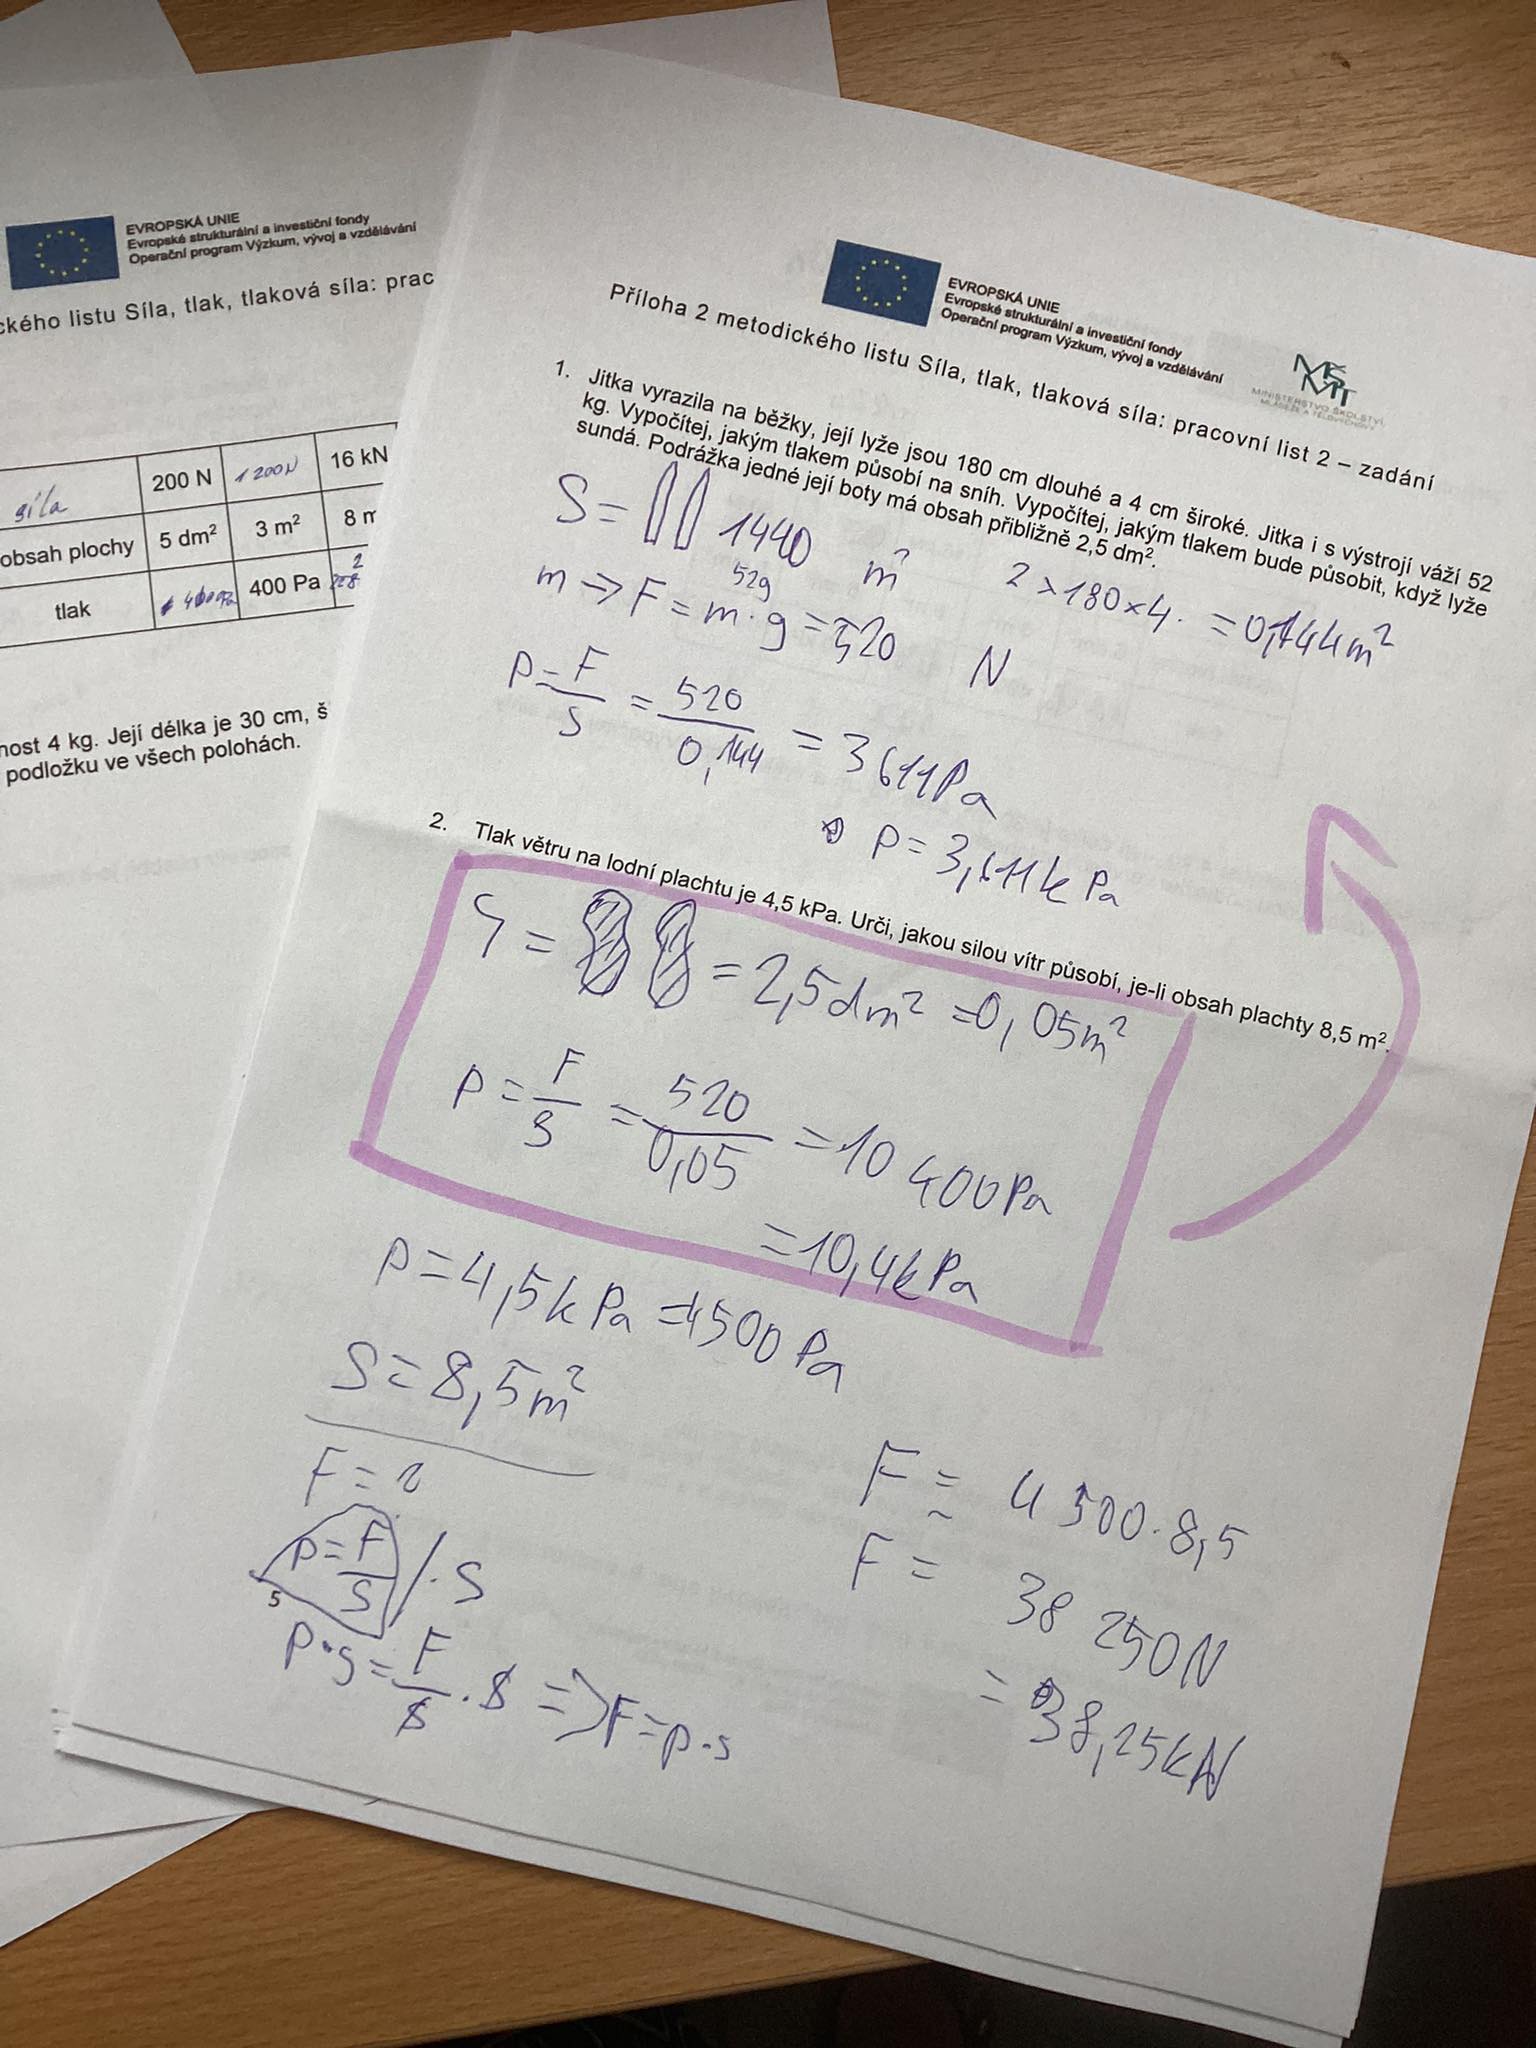 EVROPSKÁ UNIE
Evropské strukturální a investiční fondy
Operační program Výzkum, vývoj a vzdělávání
ckého listu Síla, tlak, tlaková síla: prac
síla 200 N 1 200N 16 kN
obsah plochy 5 dm² 3 m² 8 m
tlak 400 Pa
nost 4 kg. Její délka je 30 cm, š
podložku ve všech polohách.
EVROPSKÁ UNIE
Evropské strukturální a investiční fondy
Operační program Výzkum, vývoj a vzdělávání
MŠMT
MINISTERSTVO ŠKOLSTVÍ,
MLÁDEŽE A TĚLOVÝCHOVY
Příloha 2 metodického listu Síla, tlak, tlaková síla: pracovní list 2 – zadání
1. Jitka vyrazila na běžky, její lyže jsou 180 cm dlouhé a 4 cm široké. Jitka i s výstrojí váží 52
kg. Vypočítej, jakým tlakem působí na sníh. Vypočítej, jakým tlakem bude působit, když lyže
sundá. Podrážka jedné její boty má obsah přibližně 2,5 dm².
S = 1440 m² 2 × 180 × 4. = 0,144m²
52g
m => F = m · g = 520 N
p = F/S = 520/0,144 = 3611Pa
p = 3,611k Pa
2. Tlak větru na lodní plachtu je 4,5 kPa. Urči, jakou silou vítr působí, je-li obsah plachty 8,5 m².
S = = 2,5dm² = 0,05m²
p = F/S = 520/0,05 = 10 400Pa
= 10,4kPa
p = 4,5k Pa = 4500 Pa
S = 8,5m²
F = ?
p = F/S / · S
5
p · s = F/S · S => F = p · s
F = 4 500 · 8,5
F = 38 250N
= 38,25kN